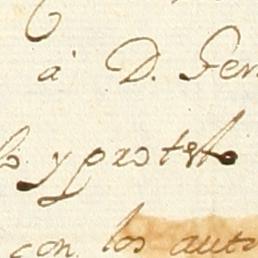 à D. Fer
y protesto
con los auto